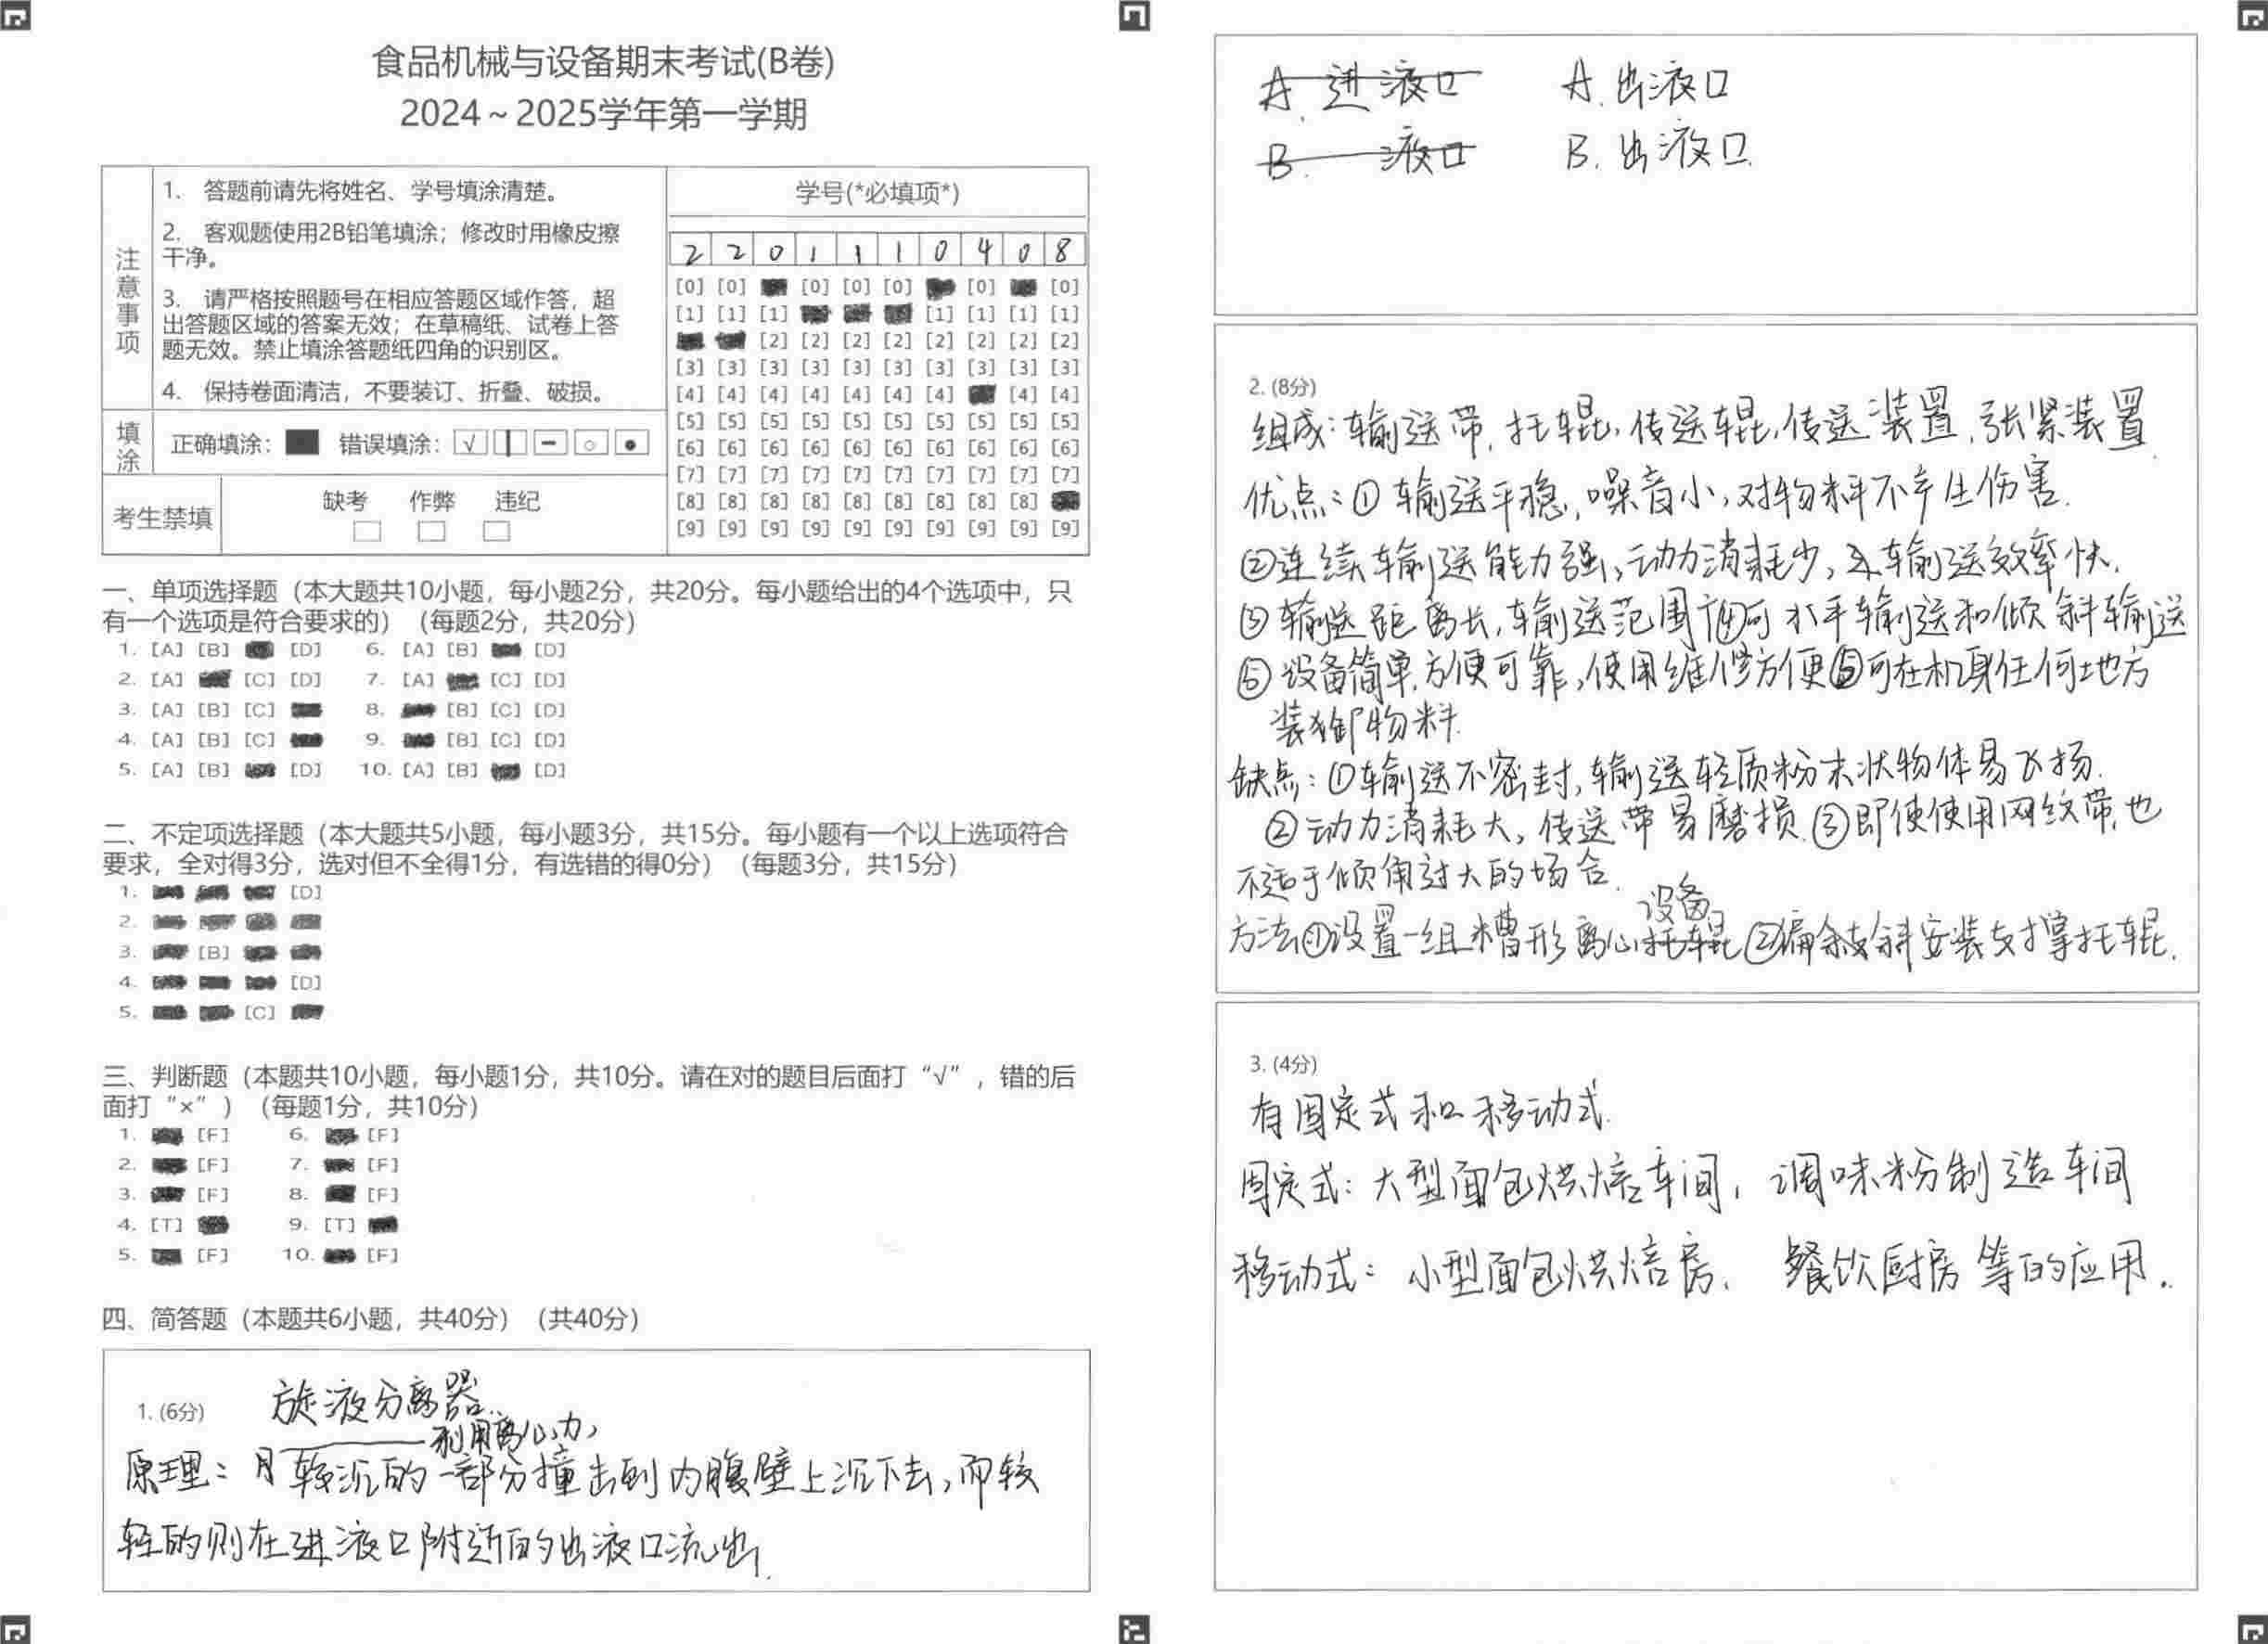 食品机械与设备期末考试(B卷)
2024～2025学年第一学期
注意事项
1. 答题前请先将姓名、学号填涂清楚。
2. 客观题使用2B铅笔填涂；修改时用橡皮擦
干净。
3. 请严格按照题号在相应答题区域作答，超
出答题区域的答案无效；在草稿纸、试卷上答
题无效。禁止填涂答题纸四角的识别区。
4. 保持卷面清洁，不要装订、折叠、破损。
填涂
正确填涂： 错误填涂： √
考生禁填
缺考 作弊 违纪
学号(*必填项*)
2 2 0 1 1 1 0 4 0 8
[0] [0] [0] [0] [0] [0] [0]
[1] [1] [1] [1] [1] [1] [1]
[2] [2] [2] [2] [2] [2] [2] [2]
[3] [3] [3] [3] [3] [3] [3] [3] [3] [3]
[4] [4] [4] [4] [4] [4] [4] [4] [4]
[5] [5] [5] [5] [5] [5] [5] [5] [5] [5]
[6] [6] [6] [6] [6] [6] [6] [6] [6] [6]
[7] [7] [7] [7] [7] [7] [7] [7] [7] [7]
[8] [8] [8] [8] [8] [8] [8] [8] [8]
[9] [9] [9] [9] [9] [9] [9] [9] [9] [9]
一、单项选择题（本大题共10小题，每小题2分，共20分。每小题给出的4个选项中，只
有一个选项是符合要求的）（每题2分，共20分）
1. [A] [B] [D] 6. [A] [B] [D]
2. [A] [C] [D] 7. [A] [C] [D]
3. [A] [B] [C] 8. [B] [C] [D]
4. [A] [B] [C] 9. [B] [C] [D]
5. [A] [B] [D] 10. [A] [B] [D]
二、不定项选择题（本大题共5小题，每小题3分，共15分。每小题有一个以上选项符合
要求，全对得3分，选对但不全得1分，有选错的得0分）（每题3分，共15分）
1. [D]
2.
3. [B]
4. [D]
5. [C]
三、判断题（本题共10小题，每小题1分，共10分。请在对的题目后面打“√”，错的后
面打“×”）（每题1分，共10分）
1. [F] 6. [F]
2. [F] 7. [F]
3. [F] 8. [F]
4. [T] 9. [T]
5. [F] 10. [F]
四、简答题（本题共6小题，共40分）（共40分）
1. (6分) 旋液分离器.
利用离心力,
原理：较沉的一部分撞击到内腹壁上沉下去，而较
轻的则在进液口附近的出液口流出.
A. 进液口 A. 出液口
B. 液口 B. 出液口
2. (8分)
组成：输送带，托辊，传送辊，传送装置，张紧装置.
优点：①输送平稳，噪音小，对物料不产生伤害.
②连续输送能力强，动力消耗少，输送效率快.
③输送距离长，输送范围广④可水平输送和倾斜输送
⑤设备简单，方便可靠，使用维修方便⑥可在机身任何地方
装卸物料.
缺点：①输送不密封，输送轻质粉末状物体易飞扬.
②动力消耗大，传送带易磨损.③即使使用网纹带，也
不适于倾角过大的场合.
设备
方法①设置一组槽形离心托辊②偏斜安装支撑托辊.
3. (4分)
有固定式和移动式.
固定式：大型面包烘焙车间，调味粉制造车间
移动式：小型面包烘焙房，餐饮厨房等的应用.